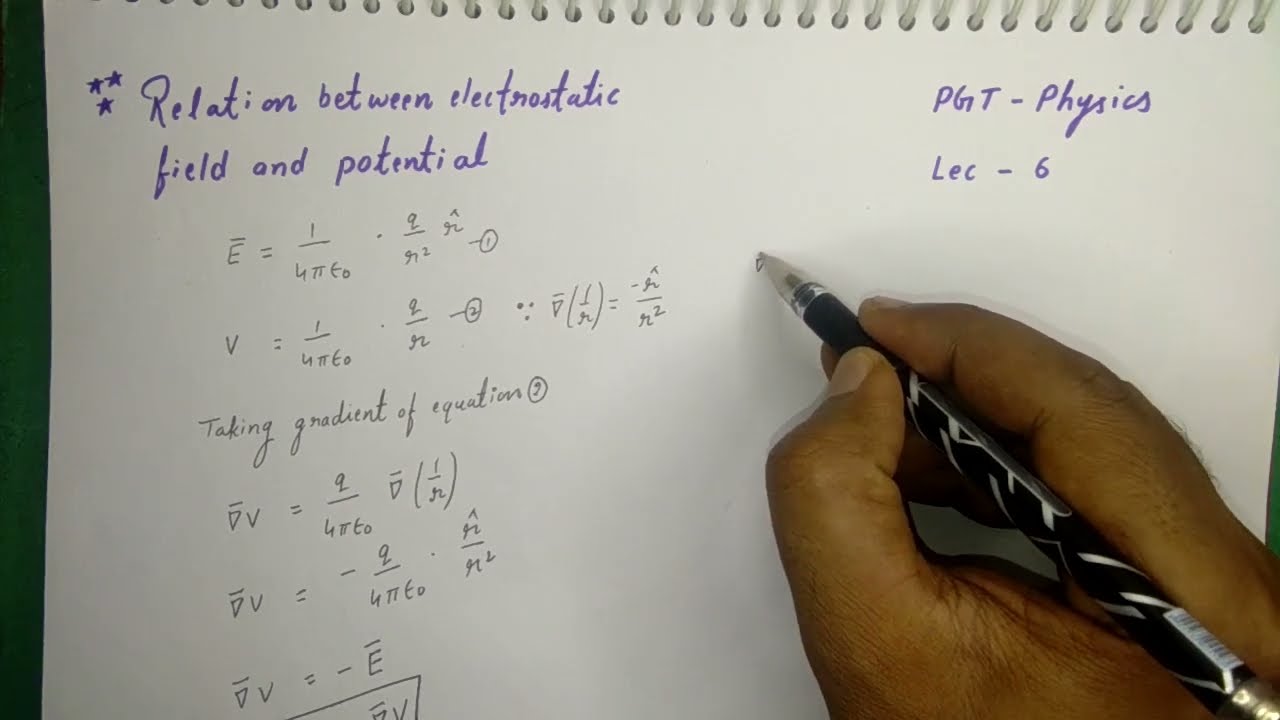 Relation between electrostatic
field and potential
PGT - Physics
Lec - 6
E̅ = 1/4πε₀ · q/r² r̂ —①
V = 1/4πε₀ · q/r —② ∵ ∇̅(1/r) = -r̂/r²
Taking gradient of equation②
∇̅V = q/4πε₀ ∇̅(1/r)
∇̅V = - q/4πε₀ · r̂/r²
∇̅V = - E̅
∇̅V
∇